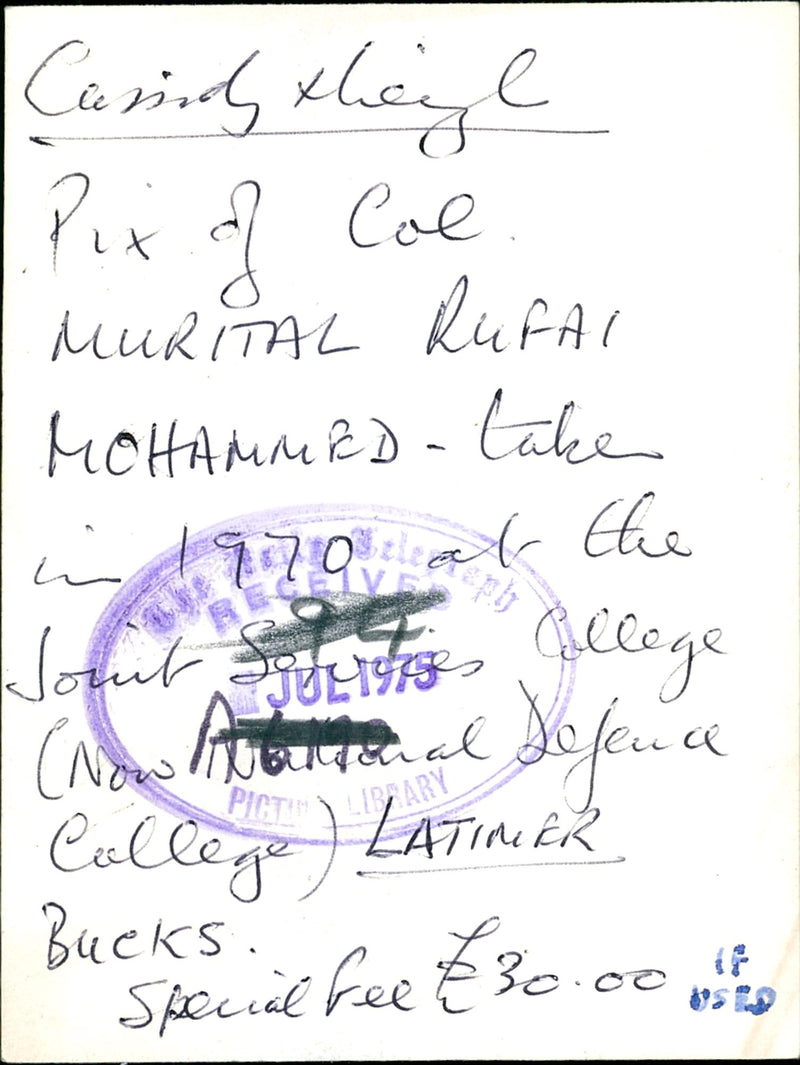 Cassidy & Leigh
Pix of Col.
MURITAL RUFAI
MOHAMMED - taken
in 1970 at the
The Daily Telegraph
RECEIVED
94
Joint Services College
JUL 1975
(Now National Defence
PICTURE LIBRARY
College) LATIMER
BUCKS.
Special Fee £30.00
IF
USED